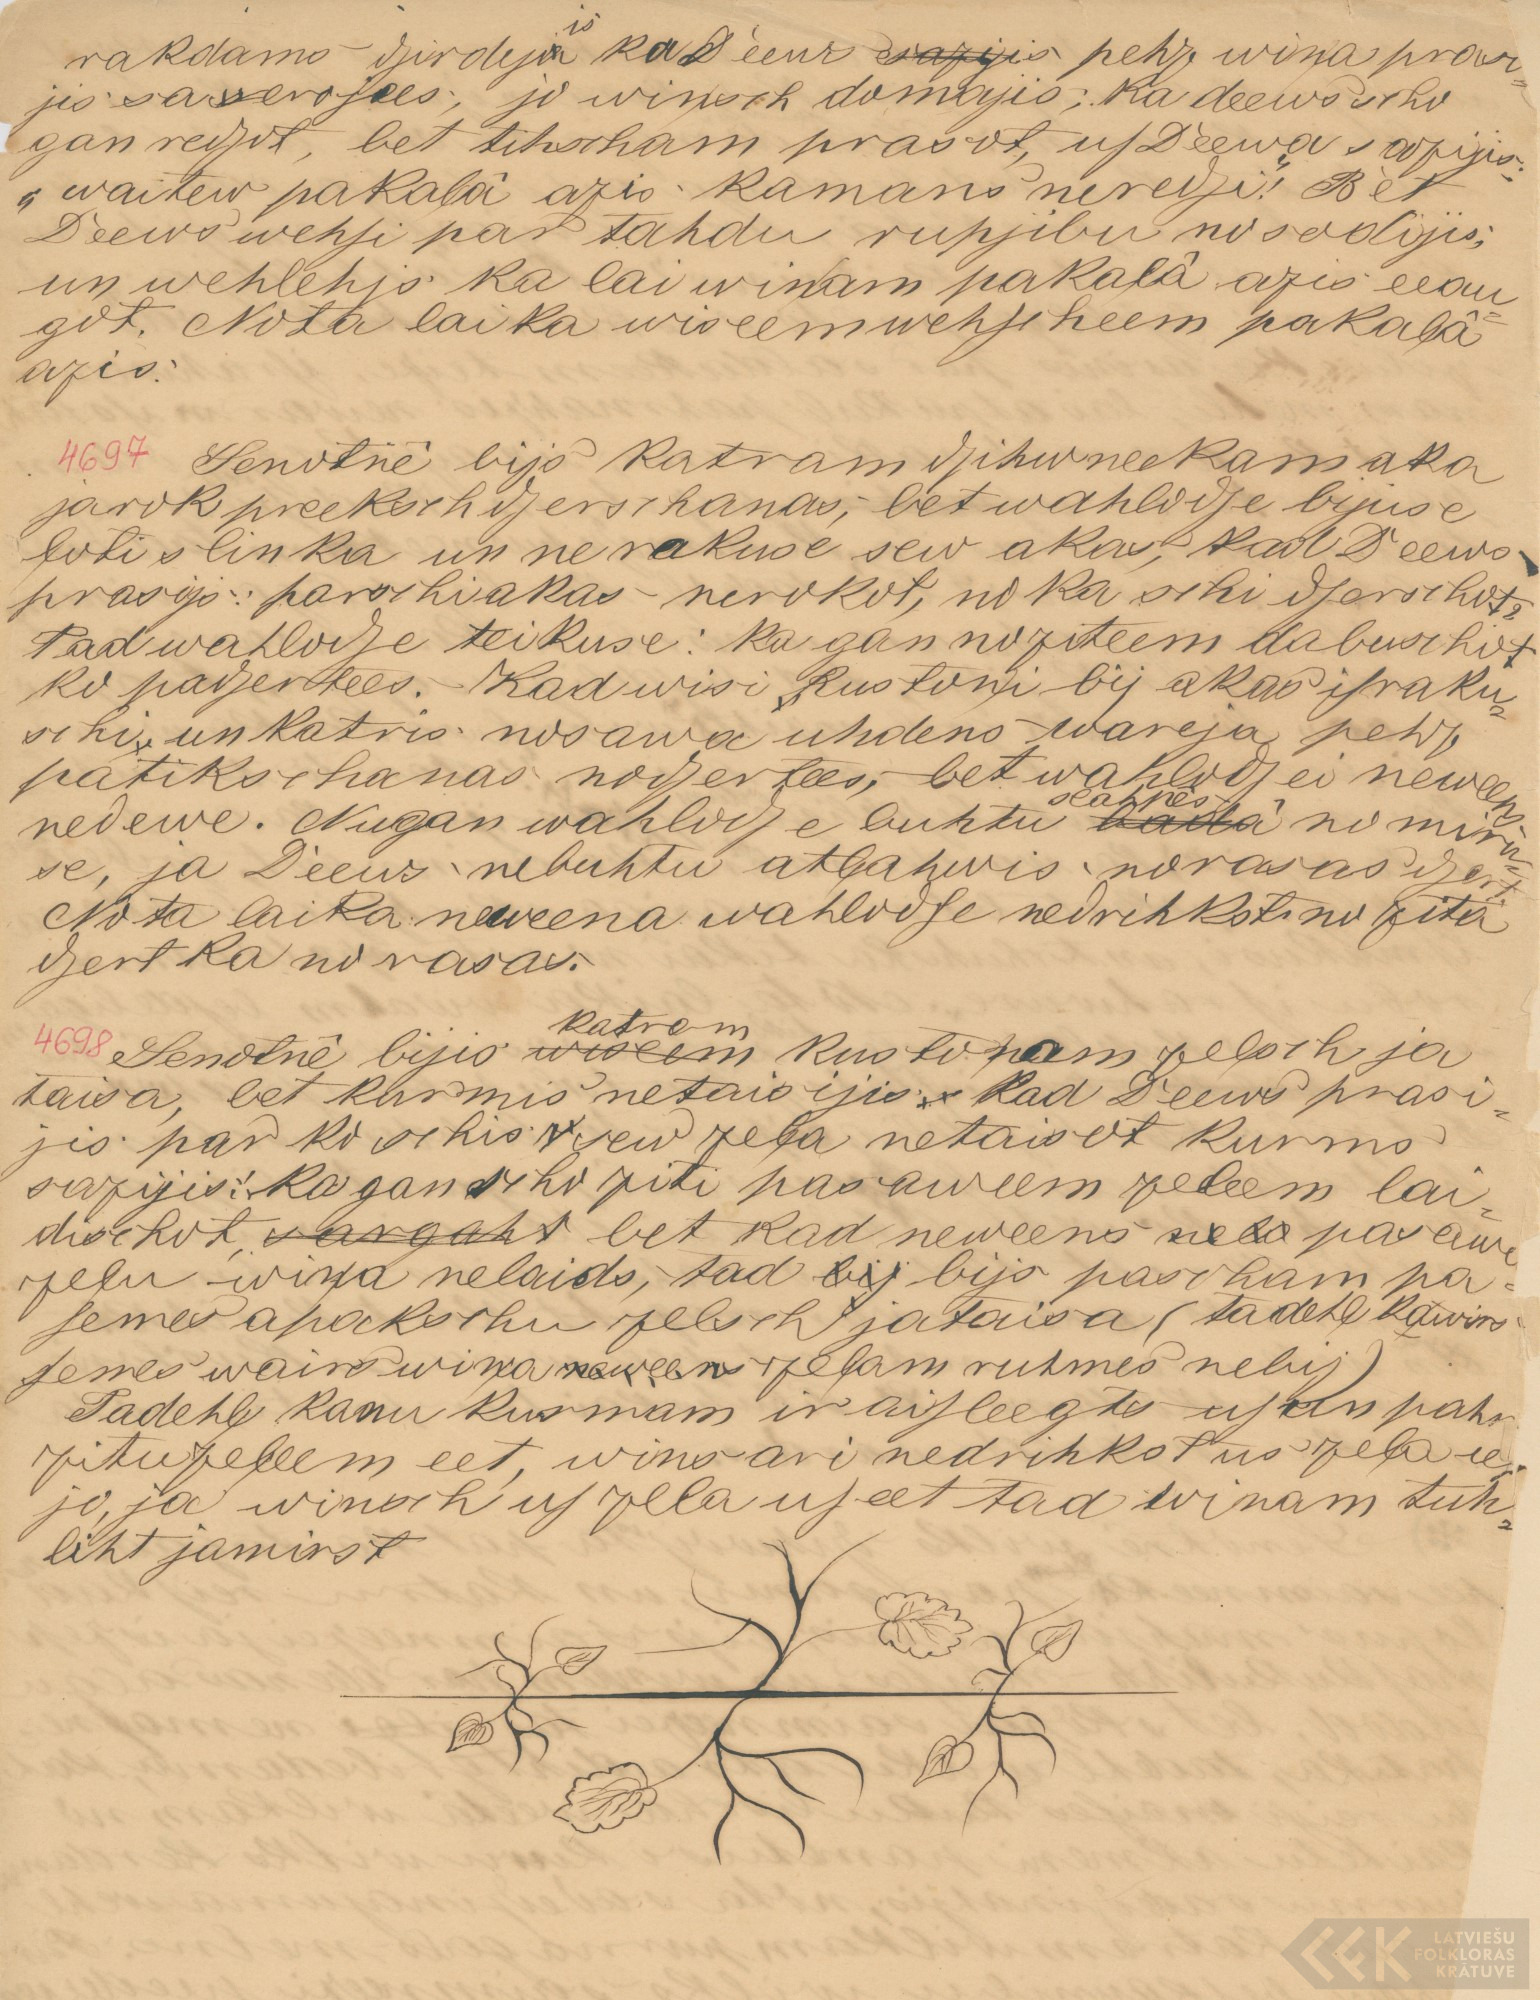 rakdams dzirdejis ka Deews sazijis pehz wiņa prasi-
jis sawerojees, jo winsch domajis: ka deews scho
gan redzot, bet tihscham prasot, us Deewa sazijis:
"wai tew pakalâ azis ka mans neredzi!" Bet
Deews wehzi par tahdu rupjibu nosodijis;
un wehlehjs ka lai winam pakalâ azis eeau-
got. No ta laika wiseem wehzcheem pakalâ
azis.
4697 Senotnê bijs katram dzihwneekam aka
jarok preeksch dzerschanas, bet wahlodze bijuse
ļoti slinka un ne rakuse sew akas, kad Deews
prasijs: par schi akas nerokot, no ka schi dzerschot?
Tad wahlodze teikuse: ka gan no ziteem dabuschot
ko padzertees. Kad wisi kustoņi bij akas israku-
schi, un katris no sawa uhdens wareja pehz
patikschanas nodzertees, bet wahlodzei neweens
nedewe. Nu gan wahlodze buhtu slahpês badâ nomiru-
se, ja Deews nebuhtu atļahwis no rasas dzert
No ta laika neweena wahlodse nedrihkst no zita
dzert ka no rasas.
4698 Senotnê bijis katram wiseem kustoņam zelsch ja
taisa, bet kurmis netaisijis. Kad Deews prasi-
jis par ko schis sew zeļa netaisot kurms
sazijis: ka gan scho ziti pa saweem zeļeem lai-
dischot, sargaht bet kad neweens pa sawu
zeļu wiņa nelaids, tad bij bijs pascham pa-
semes apakschu zelsch jataisa (tadehļ ka wirs
semes wairs wiņa neweens zeļam ruhmes nebij)
Tadehļ kamu kurmam ir aisleegts us un pahr
zitu zeļeem eet, wins ari nedrihkst us zeļa ee
jo, ja winsch us zeļa useet tad winam tuh-
liht jamirst
LATVIEŠU
FOLKLORAS
KRĀTUVE